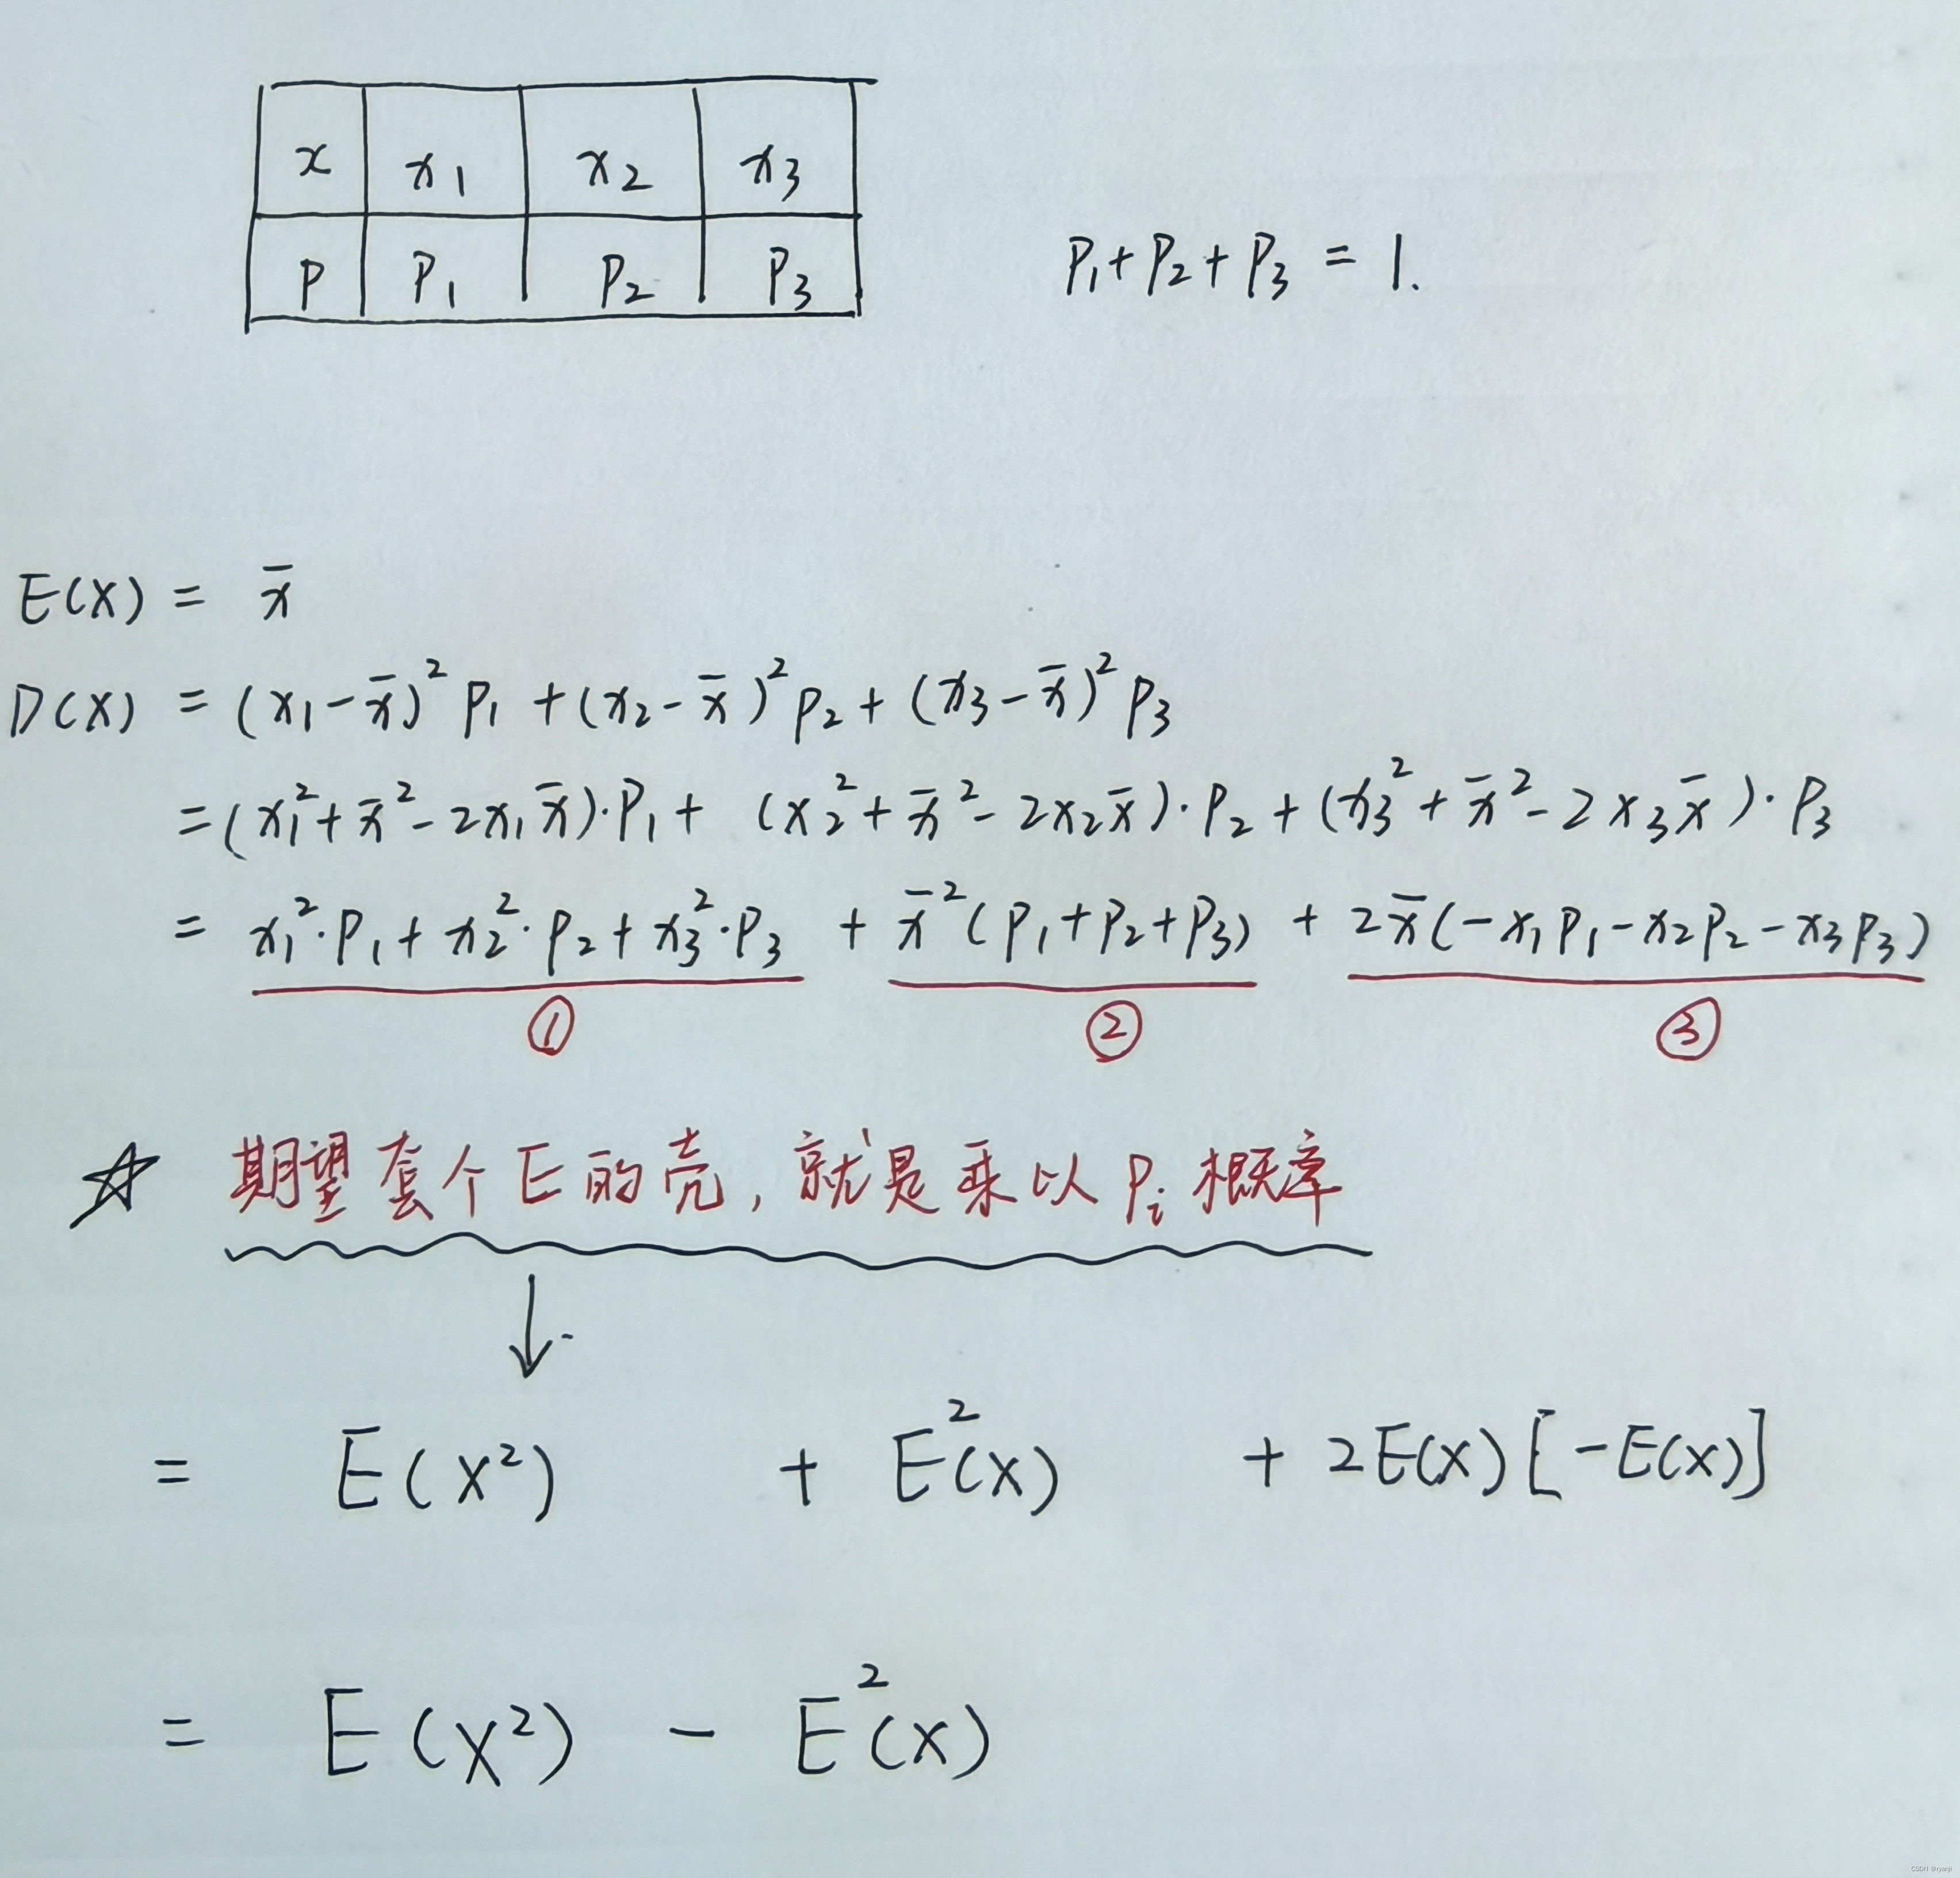 x x₁ x₂ x₃
P P₁ P₂ P₃
P₁+P₂+P₃ = 1.
E(X) = x̄
D(X) = (x₁-x̄)²P₁ + (x₂-x̄)²P₂ + (x₃-x̄)²P₃
= (x₁²+x̄²-2x₁x̄)·P₁ + (x₂²+x̄²-2x₂x̄)·P₂ + (x₃²+x̄²-2x₃x̄)·P₃
= x₁²·P₁ + x₂²·P₂ + x₃²·P₃ + x̄²(P₁+P₂+P₃) + 2x̄(-x₁P₁-x₂P₂-x₃P₃)
① ② ③
☆ 期望套个E的壳,就是乘以Pᵢ概率
↓
= E(X²) + E²(X) + 2E(X)[-E(X)]
= E(X²) - E²(X)